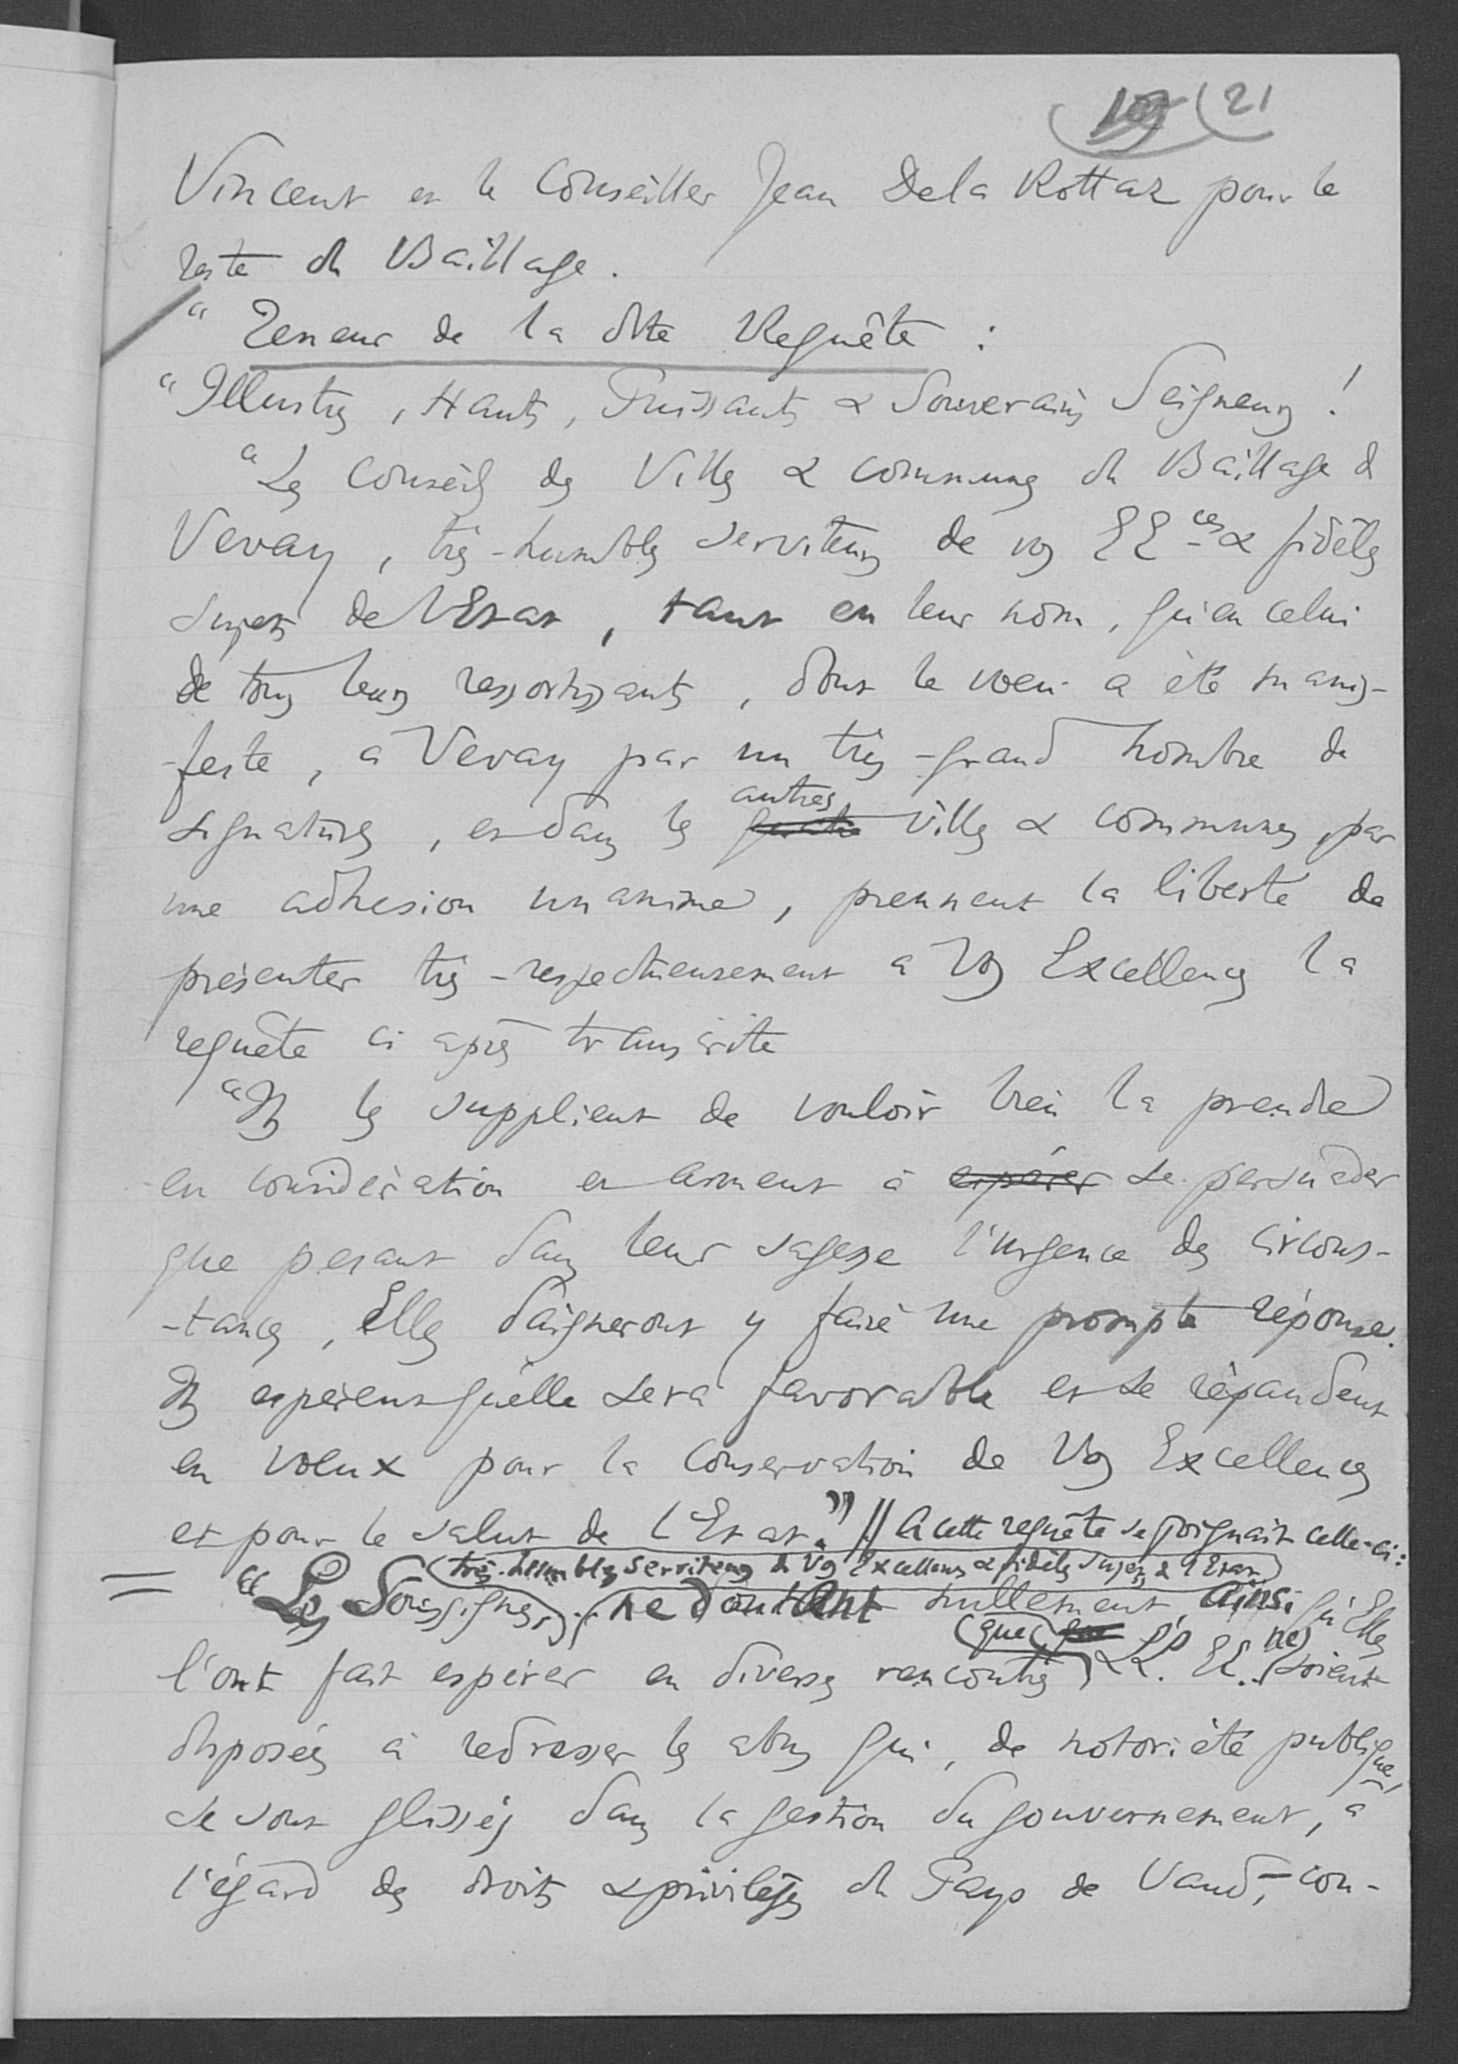 21
Vincent et le Conseiller Jean Dela Rottaz pour le
reste du Baillage.
"Teneur de la dite Requête :
"Illustres, Hauts, Puissants & Souverains Seigneurs !
"Les Conseils des Villes & communes du Baillage de
Vevay, très-humbles serviteurs de vos EE^ces & fidèles
sujets de l'Etat, tant en leur nom, qu'en celui
de tous leurs ressortissants, dont le voeu a été mani-
-festé, à Vevay par un très-grand nombre de
signatures, et dans les autres villes & communes, par
une adhesion unanime, prennent la liberté de
présenter très-respectueusement à Vos Excellences la
requête ci après transcrite
"Ils les supplient de vouloir bien la prendre
en considération et aiment à espérer se persuader
que pesant dans leur sagesse l'urgence des circons-
-tances, Elles daigneront y faire une prompte réponse.
Ils espèrent qu'elle sera favorable et se répandent
en voeux pour la conservation de Vos Excellences
et pour le salut de l'Etat." // A cette requête se joignait celle-ci :
très-humbles serviteurs de Vos Excellences & fidèles sujets de l'Etat
"Les Soussignés, ne doutant nullement, ainsi qu'Elles
l'ont fait espérer en diverses rencontres, que LL. EE. ne soient
disposées à redresser les abus qui, de notoriété publique,
se sont glissés dans la gestion du gouvernement, à
l'égard des droits & privilèges du Pays de Vaud, - con-